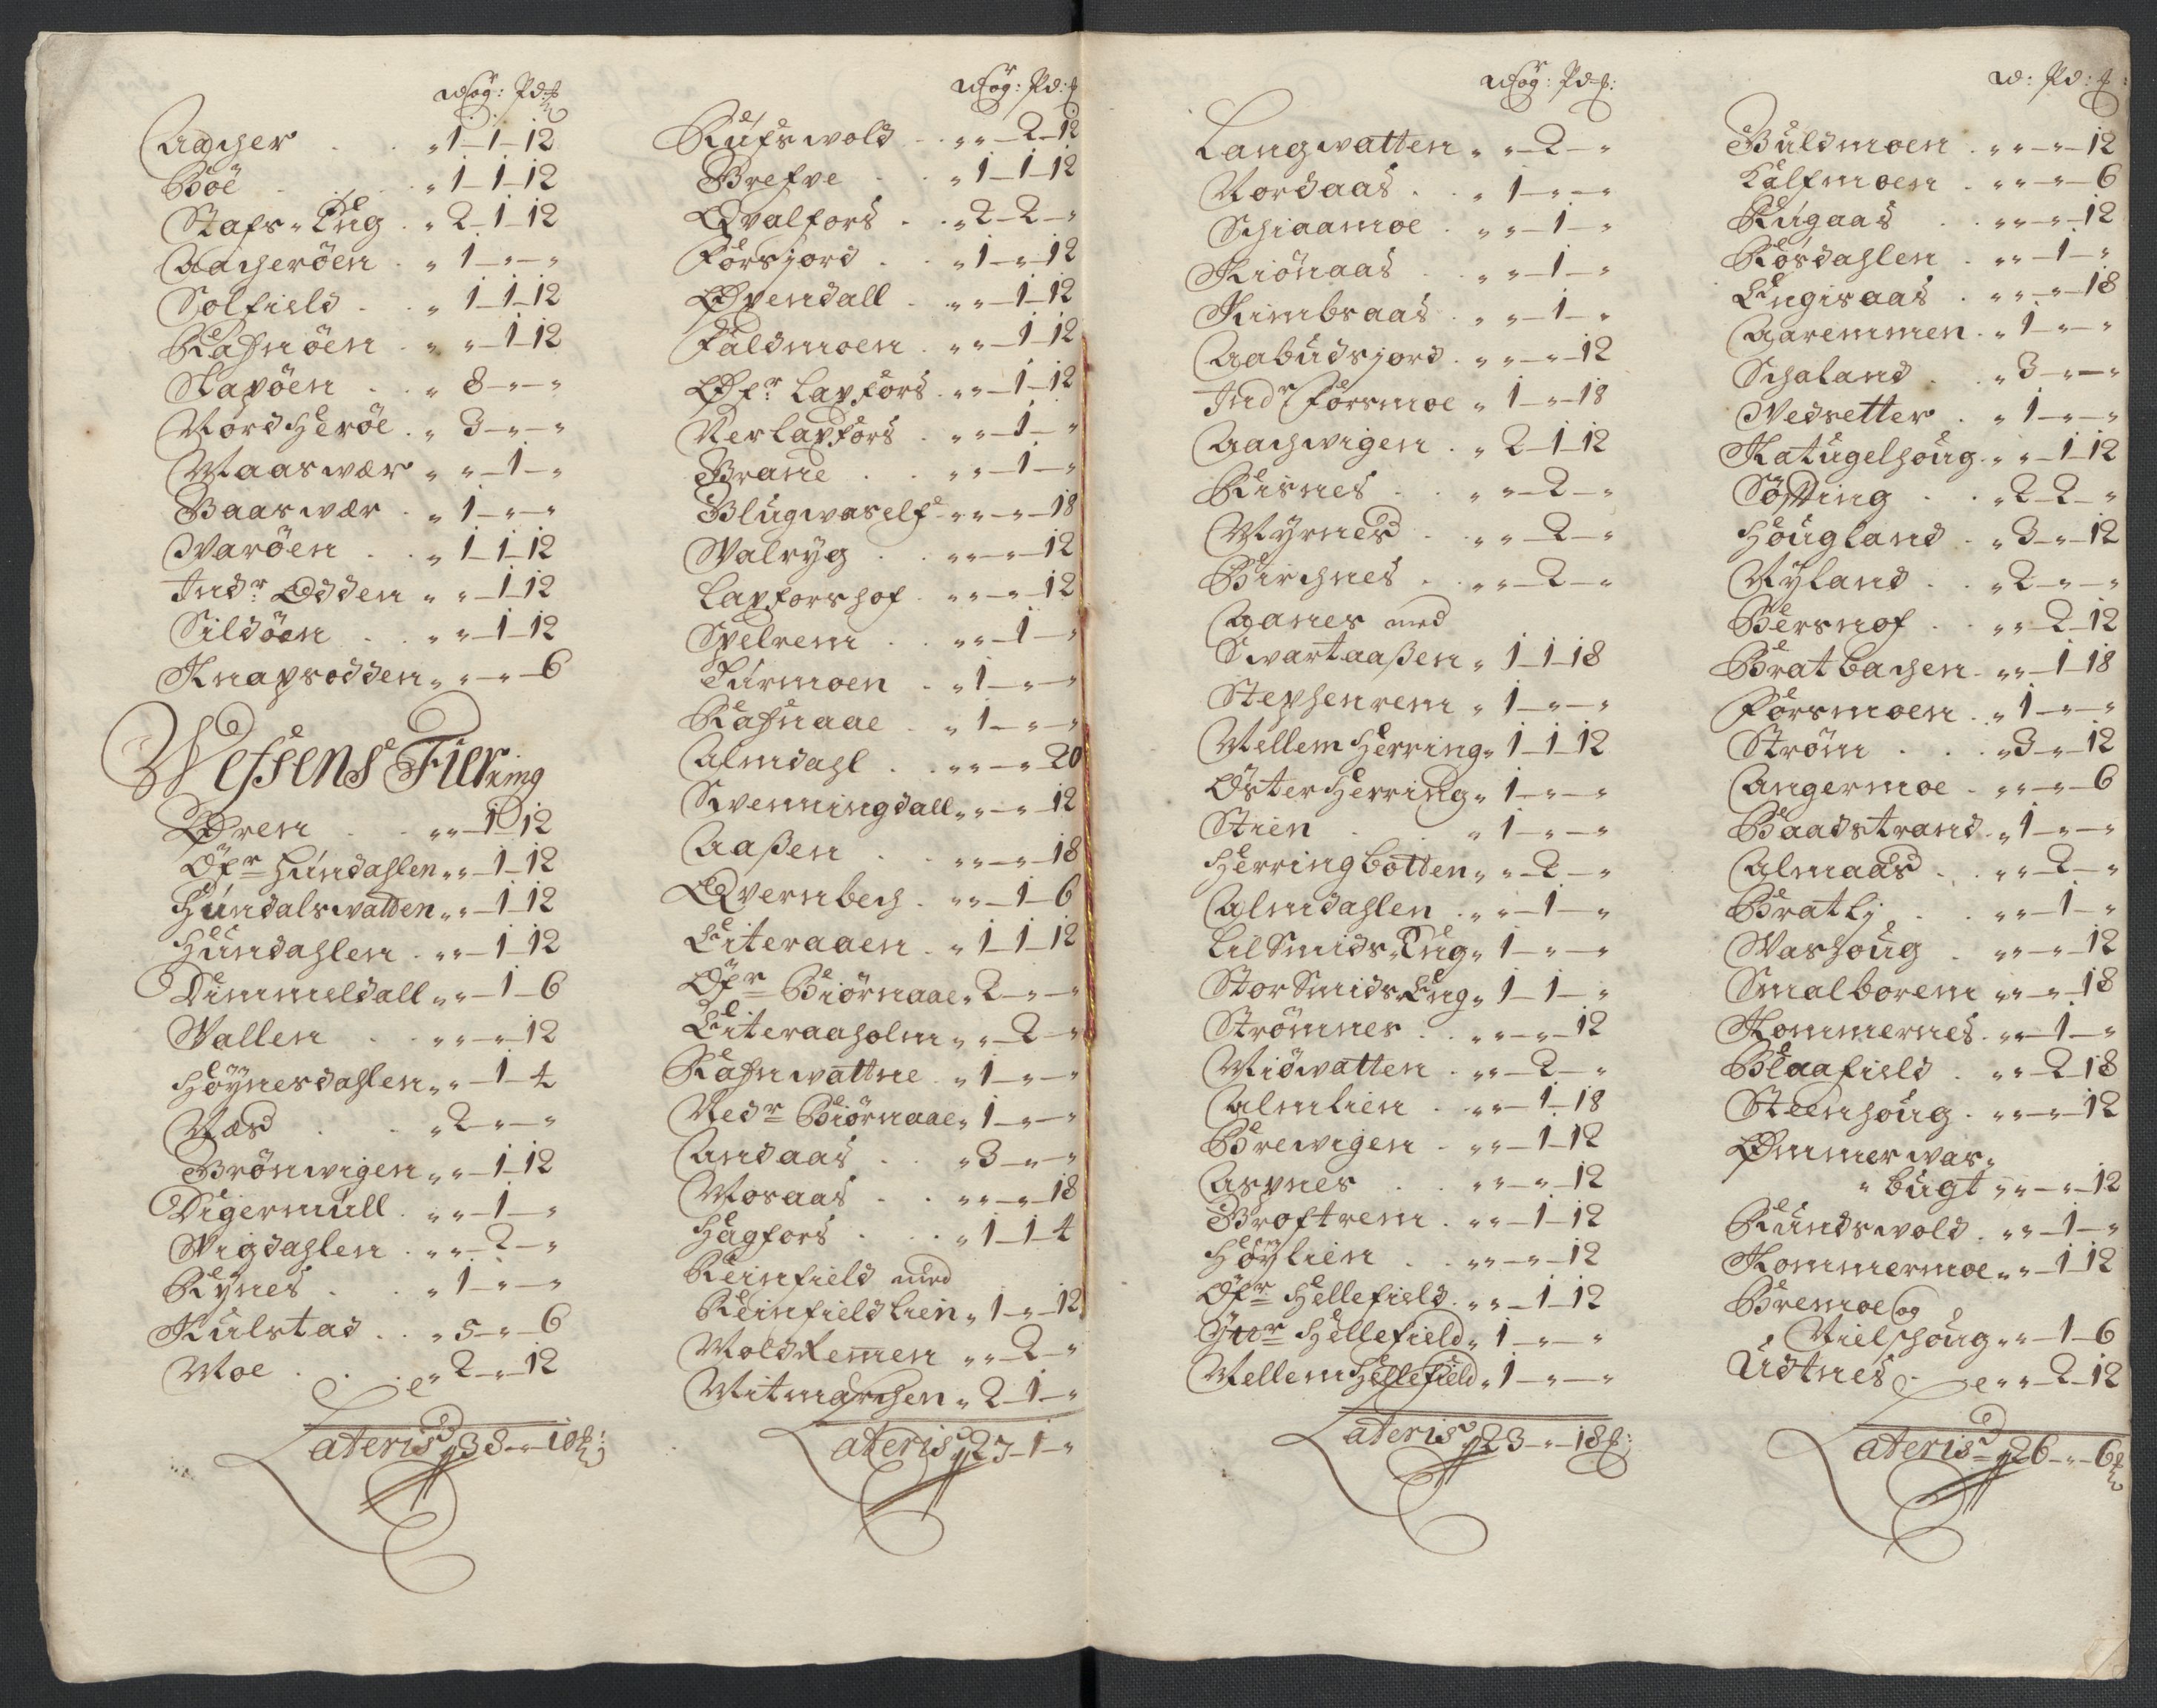 Wog: Pd: ℔
Aacher . . „ 1 – 1 – 12
Böe . . „ 1 – 1 – 12
Stafs-Eng . „ 2 – 1 – 12
Aacheröen . „ 1 – „ – „
Solfield . „ 1 – 1 – 12
Rafnöen . „ „ – 1 – 12
Slapöen . „ 8 – „ – „
Nord Heröe . „ 3 – „ – „
Maaswær „ „ – 1 – „
Baaswær . „ 1 – „ – „
Waröen . . „ 1 – 1 – 12
Indr: Odden „ „ – 1 – 12
Sildöen . . „ „ – 1 – 12
Knapsodden „ „ – „ – 6
Wefsens Fierring
Øren . . „ „ – 1 – 12
Öfr Hundahlen „ „ – 1 – 12
Hundalswatten „ „ – 1 – 12
Hundahlen . „ „ – 1 – 12
Dimmeldall „ „ – 1 – 6
Wallen . . „ „ – „ – 12
Höynesdahlen „ „ – 1 – 4
Næs . . „ 2 – „ – „
Brönwigen „ „ – 1 – 12
Digermull . „ „ – 1 – „
Wigdahlen . „ „ – 2 – „
Rynes . . „ 1 – „ – „
Kulstad . . „ 5 – „ – 6
Moe . . . „ 2 – „ – 12
Lateris 38 – „ – 10 ℔:
Wog: Pd: ℔
Rufswold . „ „ – 2 – 12
Brefve . . „ 1 – 1 – 12
Qvalfors . . „ 2 – 2 – „
Forsjord . . „ 1 – „ – 12
Qvendall . „ „ – 1 – 12
Faldmoen . „ „ – 1 – 12
Øfr: Lapfors . „ „ – 1 – 12
Ner Lapfors . „ „ – 1 – „
Brane . . „ „ – 1 – „
Blugwaself „ „ – „ – 18
Walryg . . „ „ – „ – 12
Lapforshof . „ „ – „ – 12
Spelrem . . „ „ – 1 – „
Turmoen . „ 1 – „ – „
Rafnaae . „ 1 – „ – „
Almdahl . . „ „ – „ 20
Svenningdall „ „ – „ 12
Aaßen . . „ „ – „ – 18
Qvernbech . „ „ – 1 – 6
Eiteraaen . „ 1 – 1 – 12
Öfr Biörnaae „ 2 – „ – „
Eiteraaholm „ „ – 2 – „
Rafnwattne . „ 1 – „ – „
Nedr Biörnaae „ 1 – „ – „
Andaas . . „ 3 – „ – „
Mosaas . . „ „ – „ – 18
Hagfors . . „ 1 – 1 – 4
Reinfield med
Reinfieldlien „ 1 – „ – 12
Moldremen „ „ – 2 – „
Mitmarchen „ 2 – 1 – „
Lateris 27 – 1 – „
Wog: Pd: ℔:
Langwatten „ „ – 2 – „
Nordaas . . „ 1 – „ – „
Schiaamoe . „ „ – 1 – „
Kiönaas . . „ „ – 1 – „
Kimbsaas . „ „ – 1 – „
Aabudsjord . „ „ – „ – 12
Indr Forsmoe „ 1 – „ – 18
Aachwigen . „ 2 – 1 – 12
Risnes . . „ „ – 2 – „
Myrnes . . „ „ – 2 – „
Birchnes . . „ „ – 2 – „
Aanes med
Swartaaßen „ 1 – 1 – 18
Stephenrem „ 1 – „ – „
Mellem Herring „ 1 – 1 – 12
Öster Herring „ 1 – „ – „
Stien . . „ 1 – „ – „
Herringbotten „ „ – 2 – „
Almdahlen . „ „ – 1 – „
Lil Smids-Eng „ 1 – „ – „
Stor Smids-Eng „ 1 – 1 – „
Strömnes . . „ „ – „ – 12
Miöwatten . „ „ – 2 – „
Almlien . „ „ – 1 – 18
Brewigen . „ „ – 1 – 12
Aspnes . . „ „ – „ – 12
Broftrem . „ „ – 1 – 12
Höylien . . „ „ – „ – 12
Öfr Hellefield . „ „ – 1 – 12
Ÿttr Hellefield „ 1 – „ – „
Mellem Hellefield „ 1 – „ – „
Lateris 23 – „ – 18 ℔:
W: Pd: ℔:
Buldmoen . „ „ – „ – 12
Kalfmoen . „ „ – „ – 6
Rugaas . . „ „ – „ – 12
Rösdahlen . „ „ – 1 – „
Engisaas . „ „ – „ – 18
Aaremmen . „ 1 – „ – „
Schaland . . „ 3 – „ – „
Wedsetter . „ 1 – „ – „
Katugelhoug . „ „ – 1 – 12
Søfting . . „ 2 – 2 – „
Hougland . „ 3 – „ – 12
Nyland . . „ 2 – „ – „
Bersnof . . „ „ – 2 – 12
Bratbachen . „ „ – 1 – 18
Forsmoen . „ 1 – „ – „
Ström . . . „ 3 – „ – 12
Angermoe . „ „ – „ – 6
Baadstrand . „ 1 – „ – „
Almaas . . „ „ – 2 – „
Bratli . . „ „ – 1 – „
Washoug . „ „ – „ – 12
Smalborem „ „ – „ – 18
Kommernes . „ „ – 1 – „
Blaafield . „ „ – 2 – 18
Steenhoug . „ „ – „ – 12
Ømmerwas-
„ bugt „ „ – „ – 12
Rundswold . „ „ – 1 – „
Kommermoe „ „ – 1 – 12
Bremoe og
Nielshoug „ „ – 1 – 6
Udtnes . „ „ – 2 – 12
Lateris 26 – „ – 6 ℔